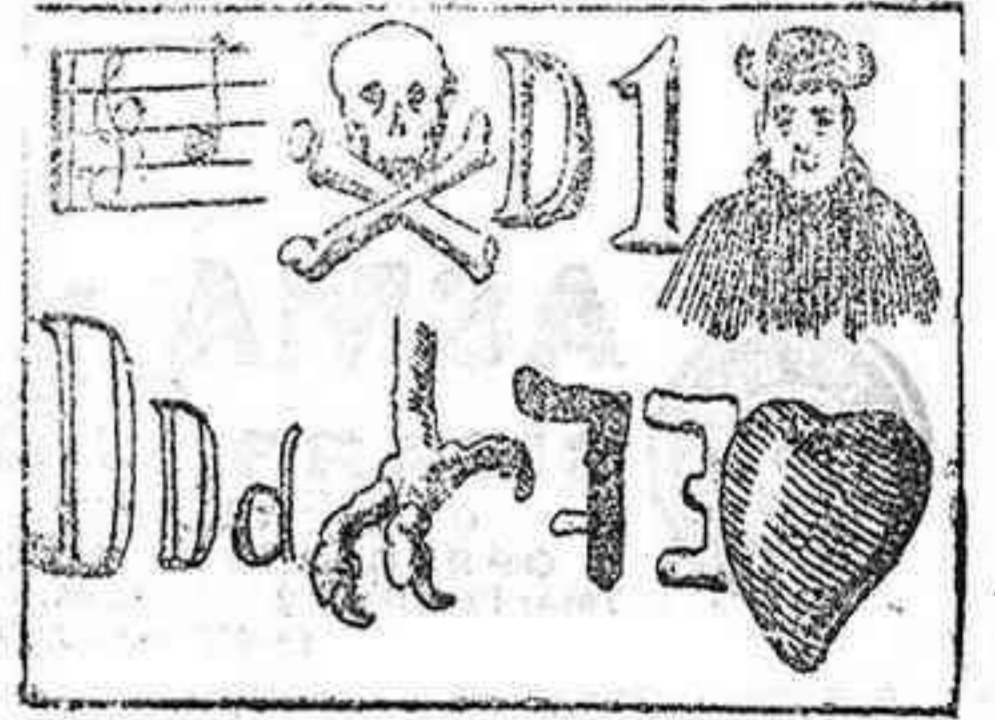 D 1
D D d F E